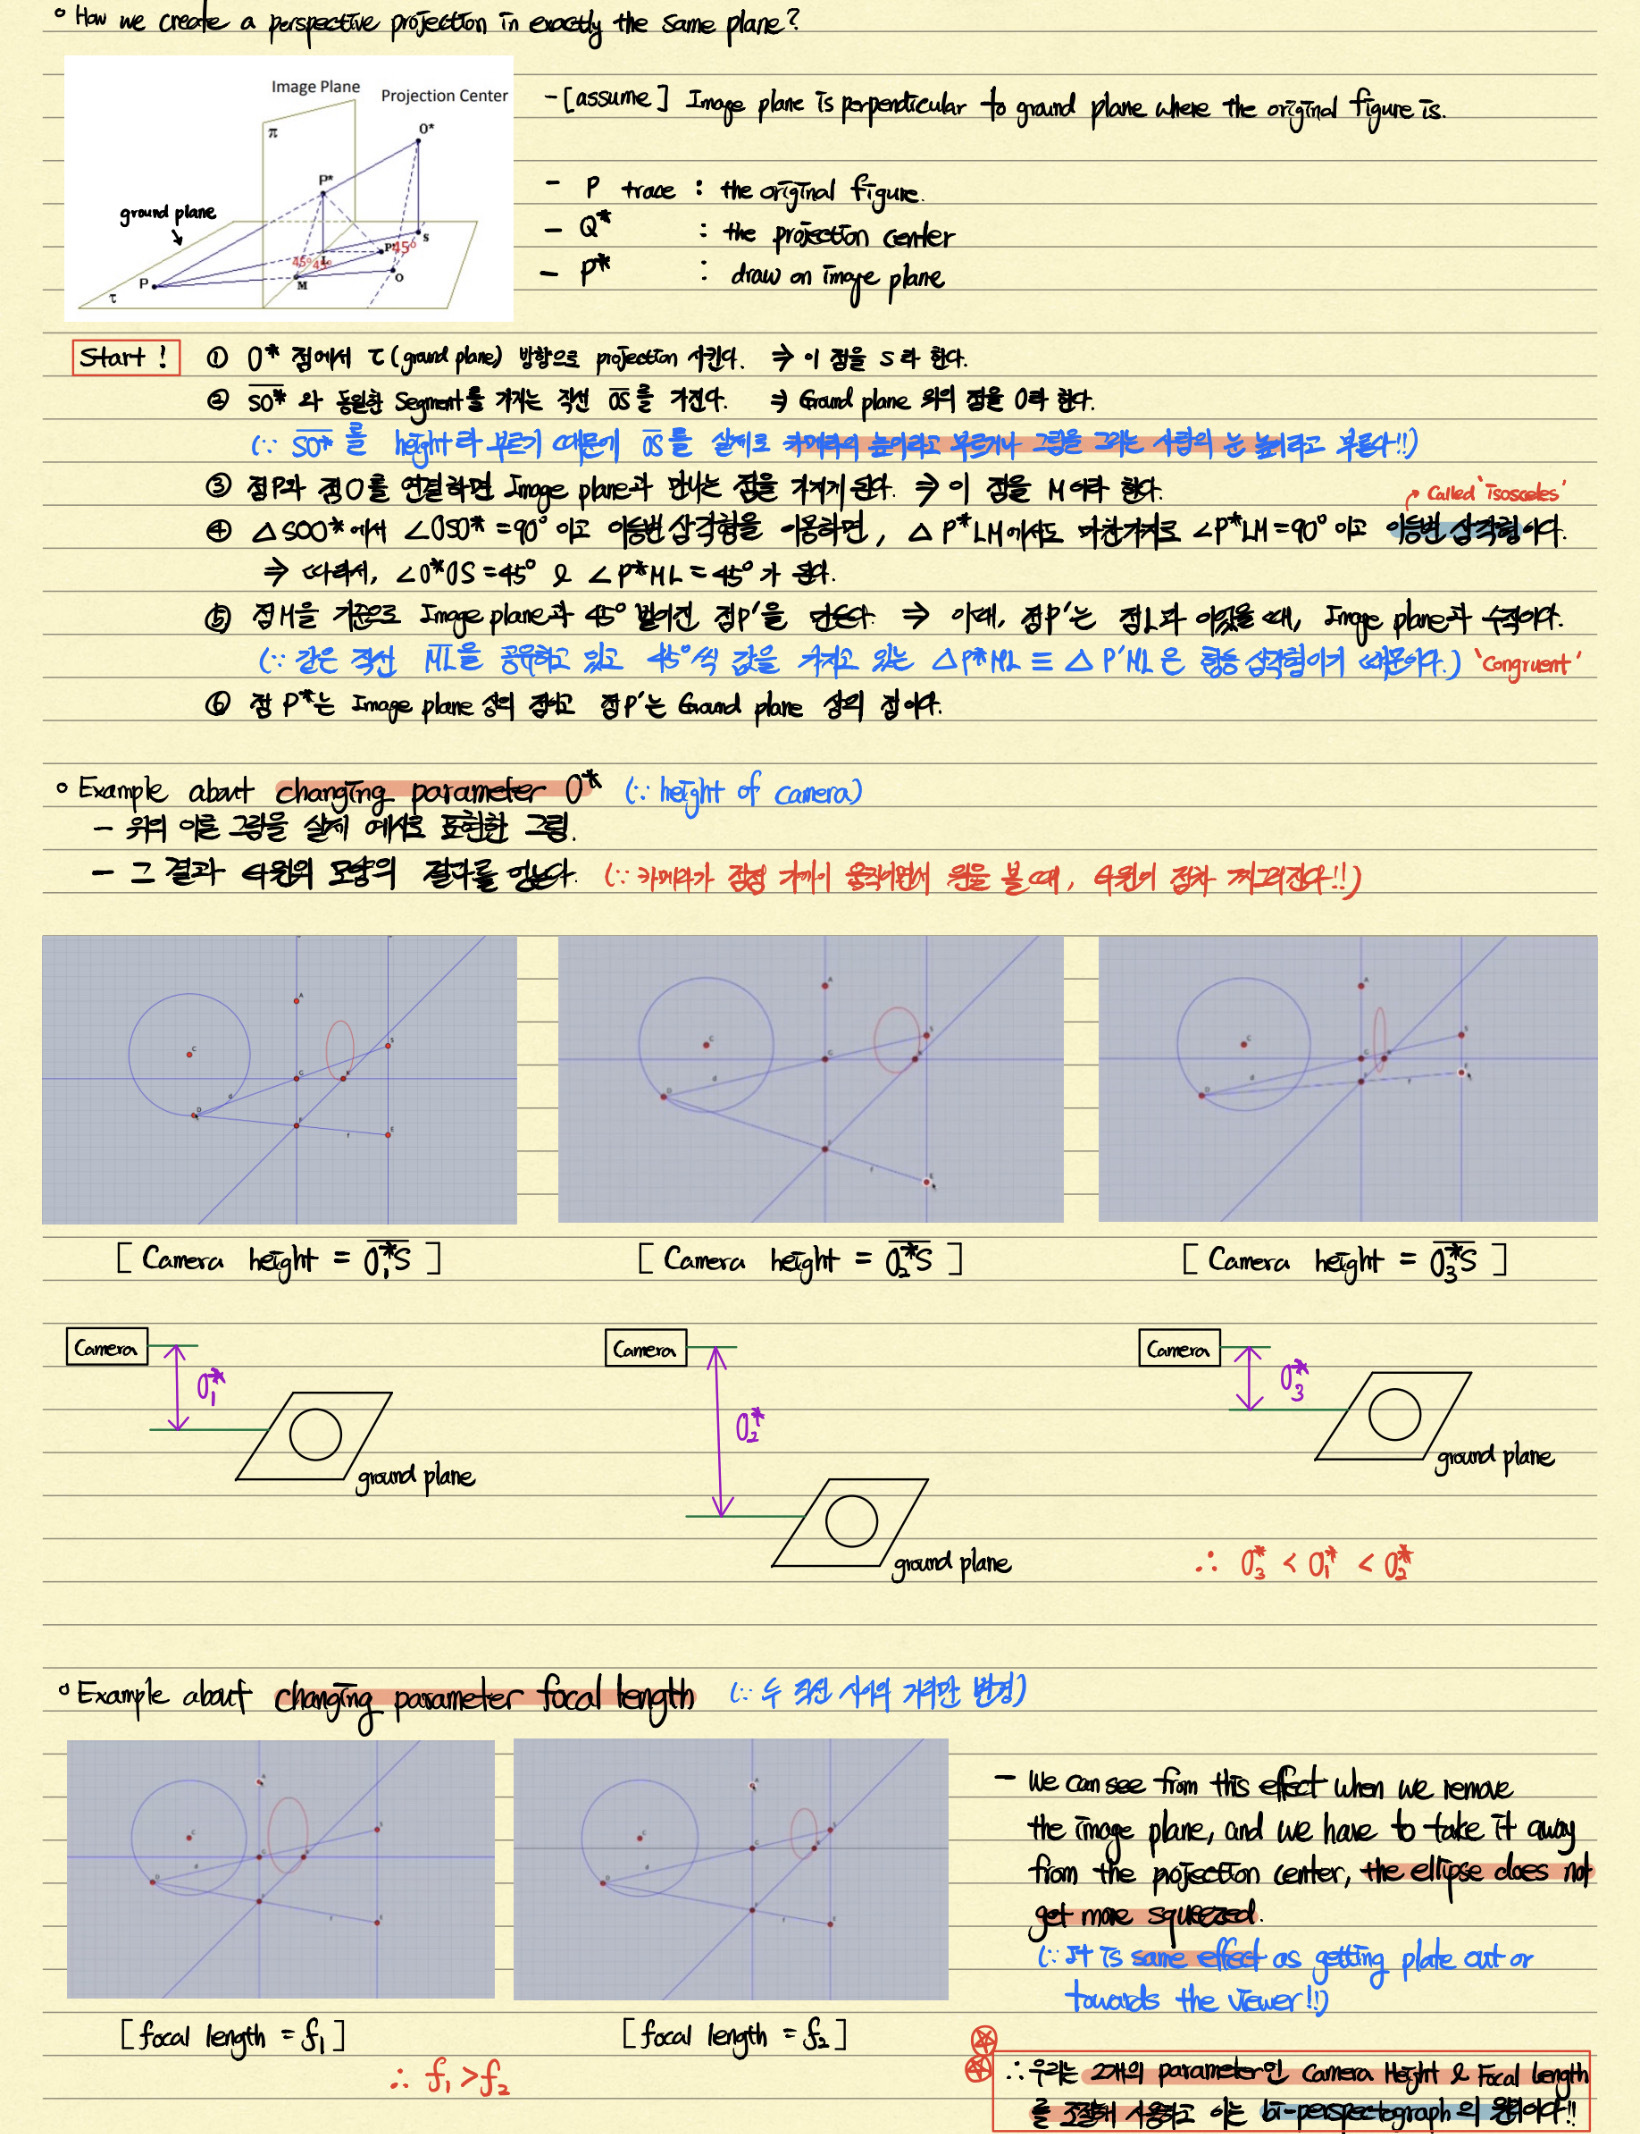 ∘ How we create a perspective projection in exactly the same plane?
Image Plane
Projection Center
π
O*
P*
ground plane
S
P'
45°
45°
45°
L
P
M
O
τ
- [assume] Image plane is perpendicular to ground plane where the original figure is.
- P trace : the original figure.
- Q* : the projection center
- P* : draw on image plane
Start !
① O* 점에서 τ(ground plane) 방향으로 projection 시킨다. ⇒ 이 점을 S라 한다.
② SO* 와 동일한 Segment를 가지는 직선 OS를 가진다. ⇒ Ground plane 위의 점을 O라 한다.
(∵ SO* 를 height라 부르기 때문에 OS를 실제로 카메라의 높이라고 부르거나 그림을 그리는 사람의 눈 높이라고 부른다!!)
③ 점P와 점O를 연결하면 Image plane과 만나는 점을 가지게 된다. ⇒ 이 점을 M이라 한다.
↱ Called 'Isosceles'
④ △SOO*에서 ∠OSO* = 90° 이고 이등변 삼각형을 이용하면, △P*LM에서도 마찬가지로 ∠P*LM = 90° 이고 이등변 삼각형이다.
⇒ 따라서, ∠O*OS = 45° & ∠P*ML = 45° 가 된다.
⑤ 점M을 기준으로 Image plane과 45° 벌어진 점P'을 만든다. ⇒ 이때, 점P'는 점L과 이었을 때, Image plane과 수직이다.
(∵ 같은 직선 ML을 공유하고 있고 45°씩 값을 가지고 있는 △P*ML ≡ △P'ML은 합동 삼각형이기 때문이다.) 'Congruent'
⑥ 점 P*는 Image plane 상의 점이고 점P'는 Ground plane 상의 점이다.
∘ Example about changing parameter O* (∵ height of camera)
- 위의 이론 그림을 실제 예시로 표현한 그림.
- 그 결과 타원의 모양의 결과를 얻는다. (∵ 카메라가 점점 가까이 움직이면서 원을 볼 때, 타원이 점차 찌그러진다!!)
[ Camera height = O₁*S ]
[ Camera height = O₂*S ]
[ Camera height = O₃*S ]
Camera
O₁*
ground plane
Camera
O₂*
ground plane
Camera
O₃*
ground plane
∴ O₃* < O₁* < O₂*
∘ Example about changing parameter focal length (∵ 두 직선 사이의 거리만 변경)
- We can see from this effect when we remove
the image plane, and we have to take it away
from the projection center, the ellipse does not
get more squeezed.
(∵ It is same effect as getting plate out or
towards the viewer!!)
[focal length = f₁]
[focal length = f₂]
∴ f₁ > f₂
∴ 우리는 2개의 parameter인 Camera Height & Focal length
를 조절해 사용하고 이는 bi-perspectograph의 원리이다!!